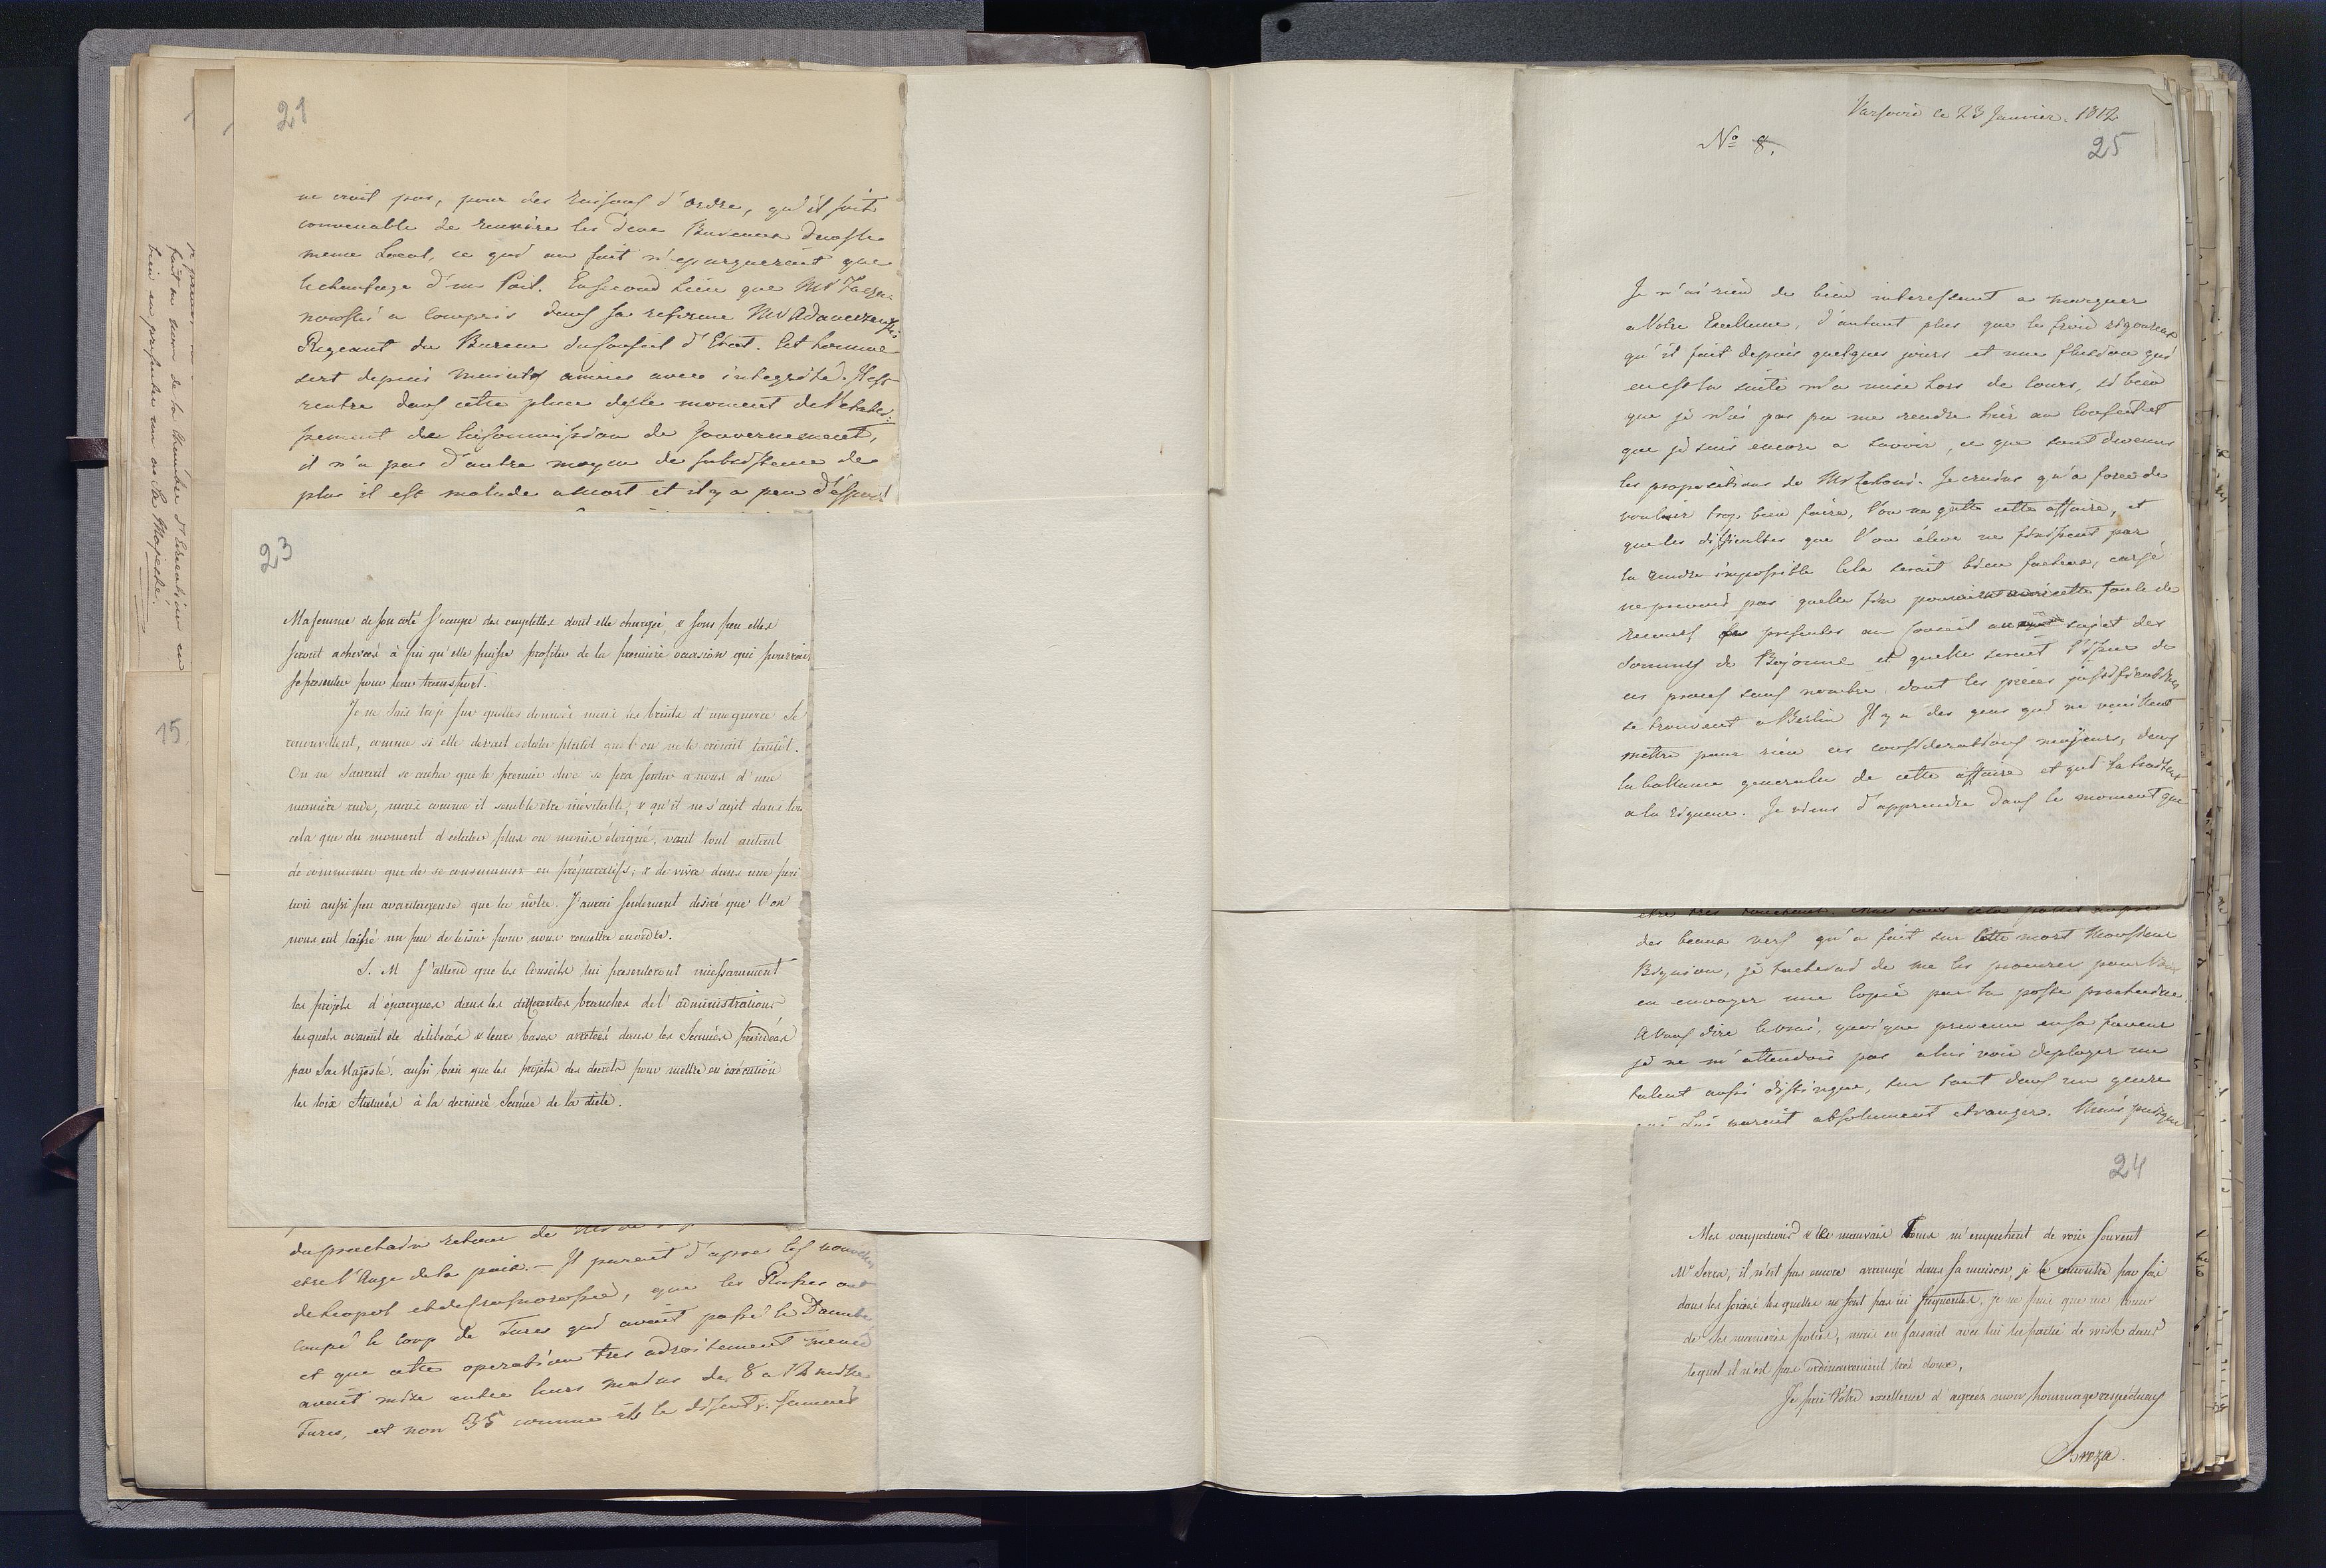 21
ne croit pas, pour des raisons d'ordre, qu'il soit
convenable de reunire les deux Bureaux dans le
meme Local, ce qui au fait n'epargnerait que
le chaufage d'un Poil. En second lieu que Mr
a compris dans sa reforme Mr
Regeant du Bureau du Conseil d'Etat. Cet homme
sert depuis années avec integrité. Il est
rentré dans cette place des le moment de l'etablis-
sement de la Commission de Gouvernement,
il n'a pas d'autre moyen de subsistence de
plus il est malade a mort et il y a peu d'espoir
23
Ma femme de son coté s'occupe des emplettes dont elle chargé, & sous peu elles
seront achevées à fin qu'elle puisse profiter de la premiere occasion qui pourrait
se presenter pour leur transport.
Je ne sais trop sur quelles données mais les bruits d'une guerre se
renouvellent, comme si elle devait eclater plutôt que l'on ne le croirait tantôt.
On ne sauroit se cacher que le premier choc se fera sentir a nous d'une
manière rude, mais comme il semble être inévitable, & qu'il ne s'agit dans tou
cela que du moment d'eclater plus ou moins éloigné, vaut tout autant
de commencer que de se consummer en préparatifs; & de vivre dans une posi
tion aussi peu avantageuse que la nôtre. J'aurai seulement desiré que l'on
nous eut laissé un peu de loisir pour nous remettre en ordre.
S. M s'attend que les Conseils lui presenteront incessamment
les projets d'épargnes dans les differentes branches de l'administration
lesquels avaient été deliberés & leurs bases arretées dans les Seances présidées
par Sa Majesté. aussi bien que les projets des decrets pour mettre en éxécution
les loix Statuées à la dernière Seance de la diete.
du prochain retour de
etre l'Ange de la paix. — Il parait d'apres les nouvelles
de Leopol que les Russes ont
coupé le corp de Turcs qui avait passé le Danube
et que cette operation tres adroitement menée
avait mise entre leurs mains de 8 a 12 mille
Turcs, et non 35 comme ils le disent.
en
fait au nom de la Chambre d'
bien en presenter un a Sa Majesté.
15
Varsovie le 23 Janvier. 1812
No 8.
25
Je n'ai rien de bien interessant a marquer
a Votre Excellence, d'autant plus que le froid rigoureux
qu'il fait depuis quelques jours et une fluxion qui
en est la suite m'a mise hors de cours, si bien
que je n'ai pas pu me rendre hier au Conseil et
que je suis encore a savoir, ce que sont devenus
les propositions de Mr. Je crains qu'a force de
vouloir trop bien faire, l'on ne gatte cette affaire, et
que les difficultes que l'on éleve ne finissent par
la rendre impossible Cela serait bien facheux, car je
ne prevoit pas quelle fin cette foule de
presentés au Conseil au sujet des
sommes de Bajonne et quelle serait l'issue de
ces procés sans nombre, dont les pieces justificatives
se trouvent a Berlin Il y a des gens qui ne veuillent
mettre pour rien ces considerations majeurs, dans
la ballance generale de cette affaire et qui la traittent
a la rigueur. Je viens d'apprendre dans le moment que
des beaux vers qu'a fait sur cette mort Monsieur
Bignion, je tacherai de me les procurer pour Vous
en envoyer une copie par la poste prochaine.
A vous dire le vrai, quoique prevenu en sa faveur
je ne m'attendois pas a lui voir deployer un
talent aussi distingué, sur tout dans un genre
qui lui parait absolument etranger. Mais puisque
24
Mes occupations & le mauvais tems m'empechent de voir souvent
Mr Serra, il n'est pas encore arrangé dans sa maison, je le rencontre par fois
dans les soirées lesquelles ne sont pas ici frequentes, je ne puis que me louer
de ses manières polies, mais en faisant avec lui la partie de wisk dans
lequel il n'est pas ordinairement tres doux,
Je prie Votre excellence d'agréer mon hommage respectueux
Breza.